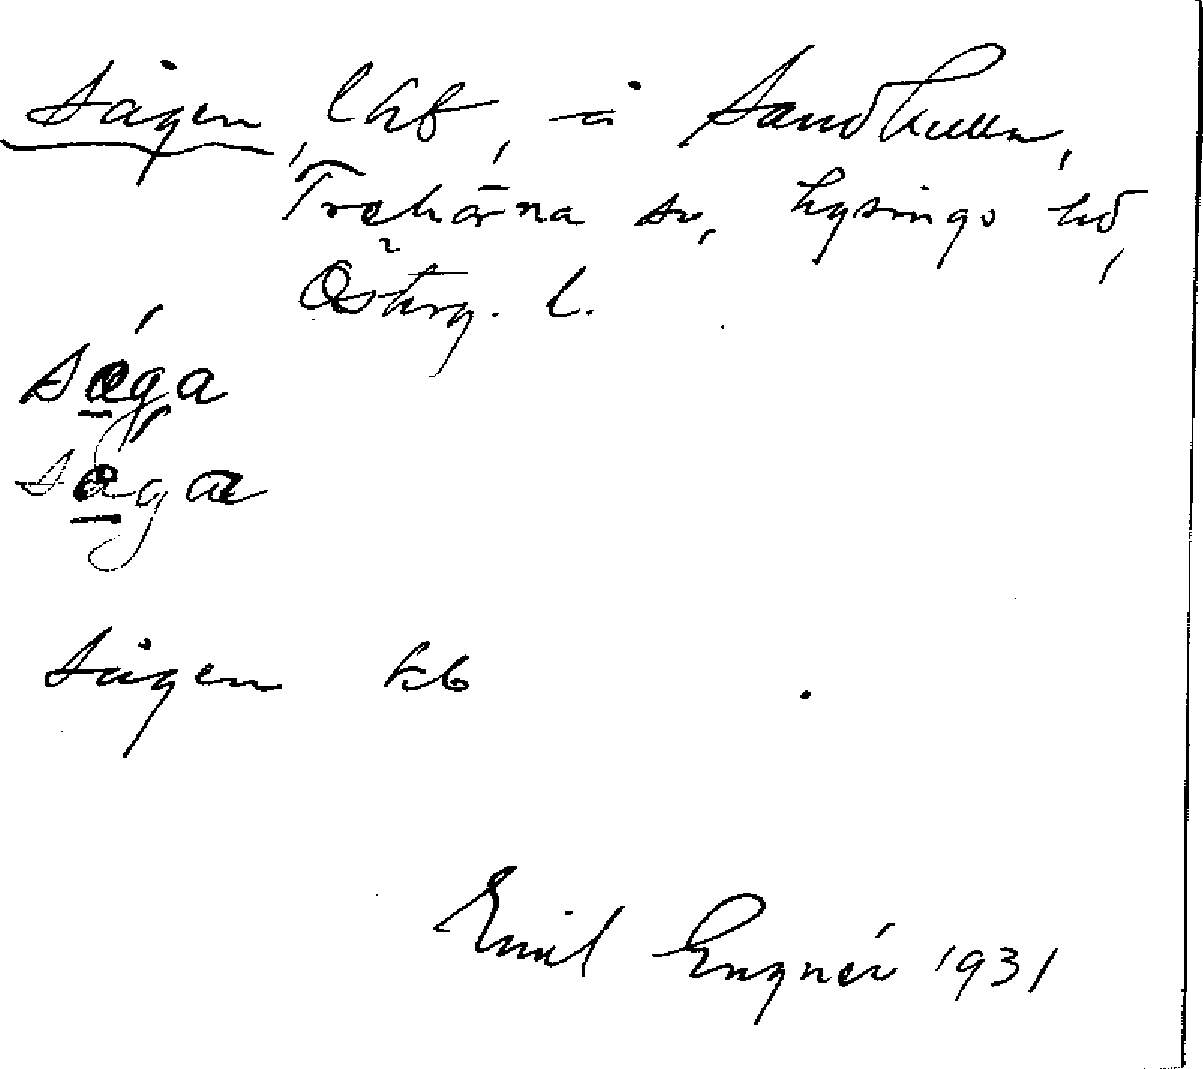 Sågen, lht, å Sandkulla,
Trehörna sn, Lysings hd,
Österg. l.
såga
såga
Sågen kb
Emil Engnér 1931